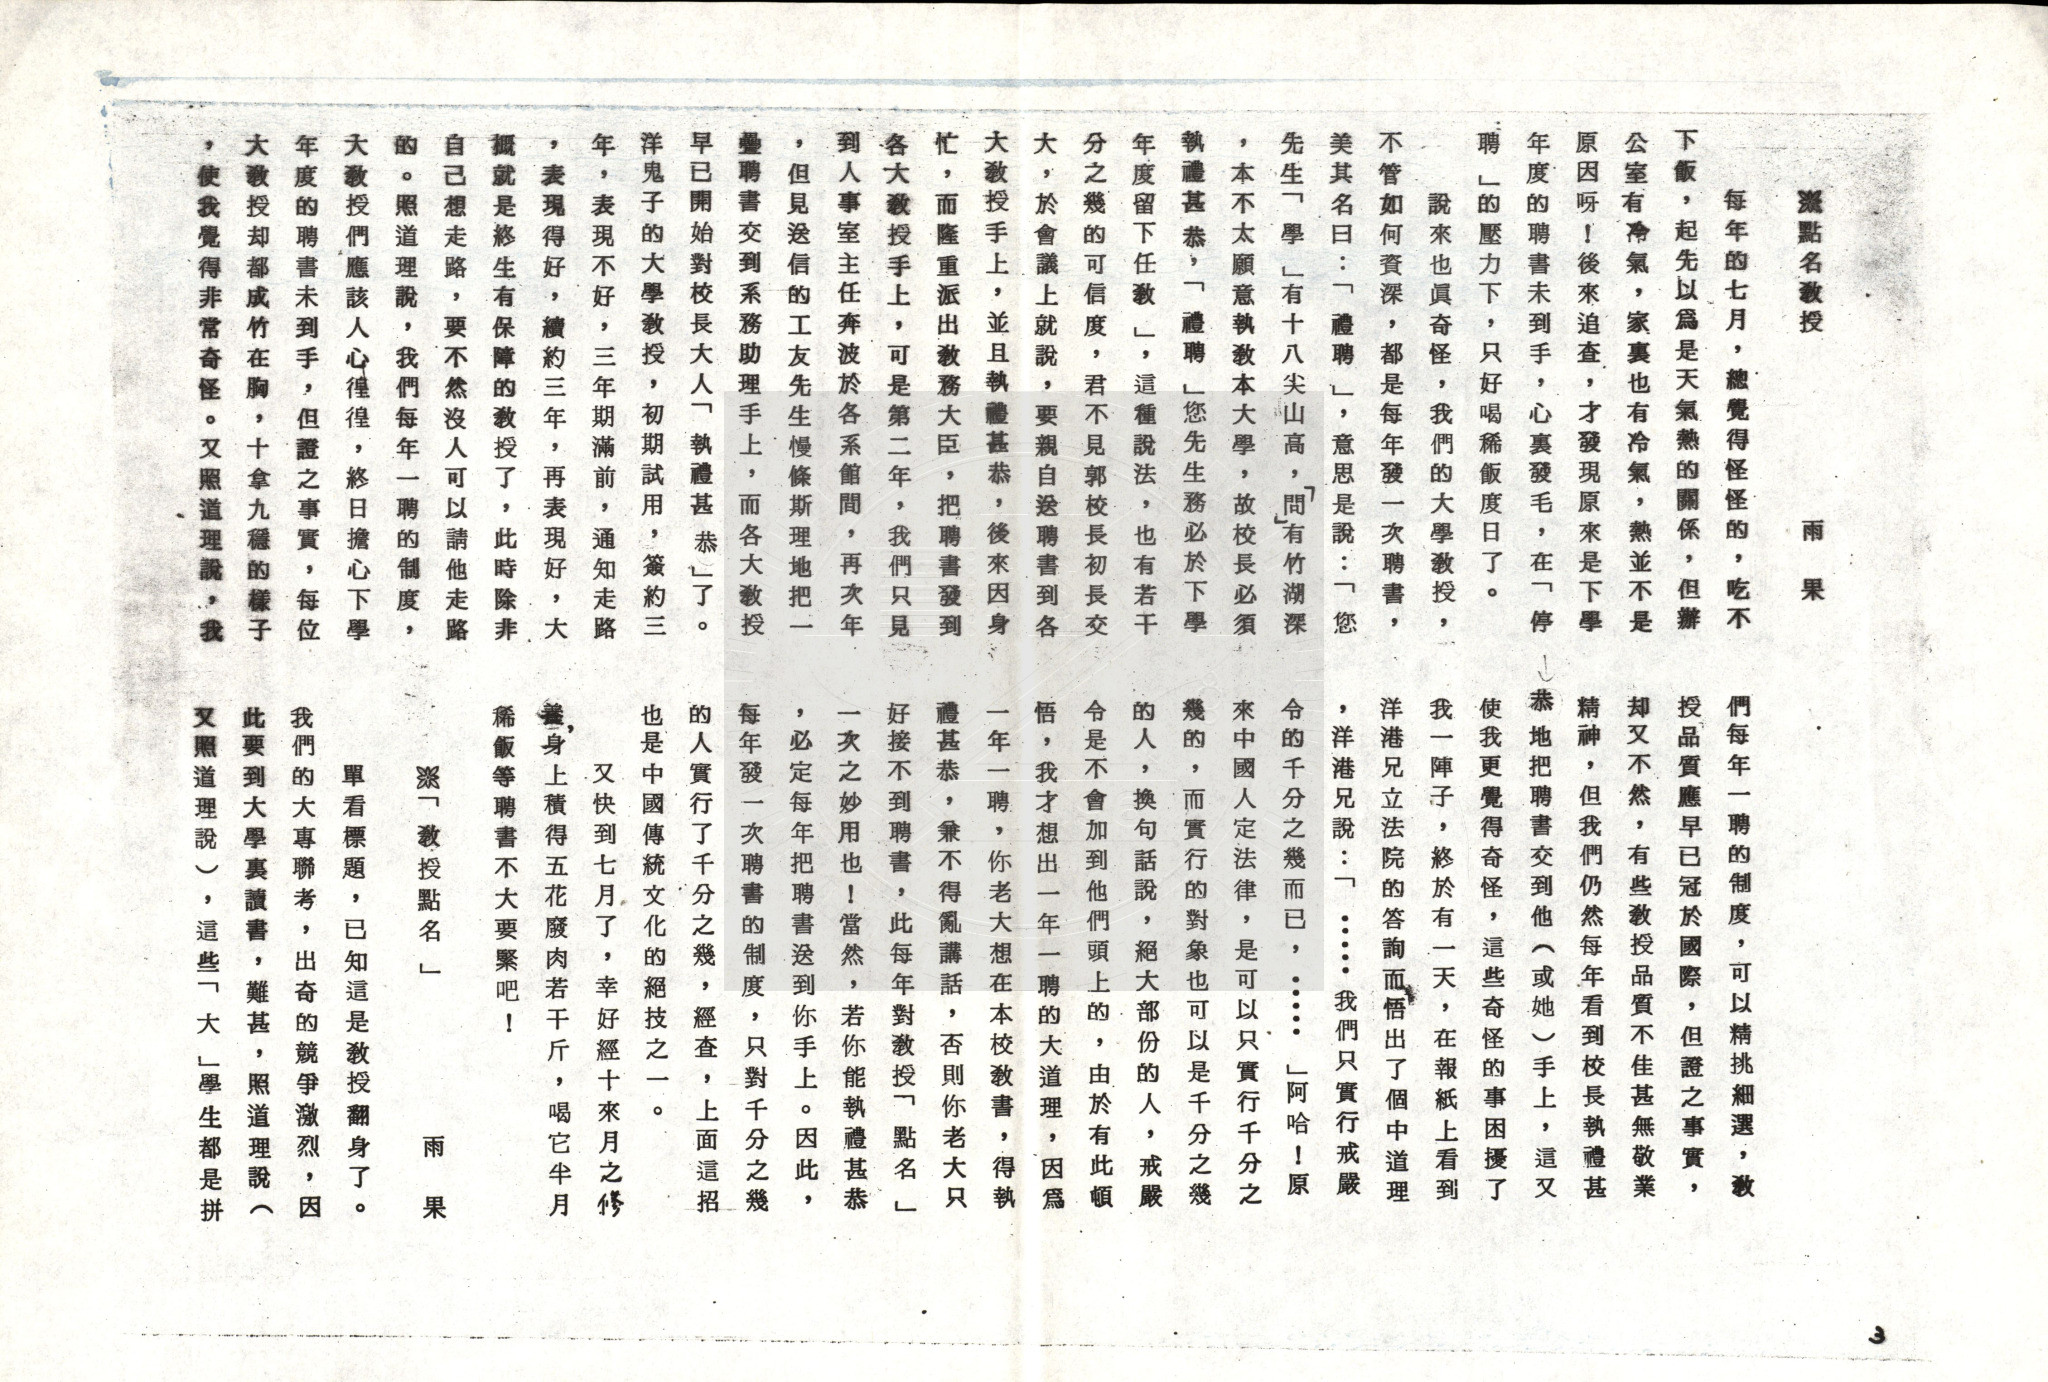 ※點名教授　　　　　雨　果
每年的七月，總覺得怪怪的，吃不
下飯，起先以為是天氣熱的關係，但辦
公室有冷氣，家裏也有冷氣，熱並不是
原因呀！後來追查，才發現原來是下學
年度的聘書未到手，心裏發毛，在「停
聘」的壓力下，只好喝稀飯度日了。
說來也眞奇怪，我們的大學教授，
不管如何資深，都是每年發一次聘書，
美其名曰：「禮聘」，意思是說：「您
先生「學」有十八尖山高，「問」有竹湖深
，本不太願意執教本大學，故校長必須
執禮甚恭，「禮聘」您先生務必於下學
年度留下任教」，這種說法，也有若干
分之幾的可信度，君不見郭校長初長交
大，於會議上就說，要親自送聘書到各
大教授手上，並且執禮甚恭，後來因身
忙，而隆重派出教務大臣，把聘書發到
各大教授手上，可是第二年，我們只見
到人事室主任奔波於各系館間，再次年
，但見送信的工友先生慢條斯理地把一
疊聘書交到系務助理手上，而各大教授
早已開始對校長大人「執禮甚恭」了。
洋鬼子的大學教授，初期試用，簽約三
年，表現不好，三年期滿前，通知走路
，表現得好，續約三年，再表現好，大
概就是終生有保障的教授了，此時除非
自己想走路，要不然沒人可以請他走路
的。照道理說，我們每年一聘的制度，
大教授們應該人心惶惶，終日擔心下學
年度的聘書未到手，但證之事實，每位
大教授却都成竹在胸，十拿九穩的樣子
，使我覺得非常奇怪。又照道理說，我
們每年一聘的制度，可以精挑細選，教
授品質應早已冠於國際，但證之事實，
却又不然，有些教授品質不佳甚無敬業
精神，但我們仍然每年看到校長執禮甚
恭地把聘書交到他（或她）手上，這又
使我更覺得奇怪，這些奇怪的事困擾了
我一陣子，終於有一天，在報紙上看到
洋港兄立法院的答詢而悟出了個中道理
，洋港兄說：「……我們只實行戒嚴
令的千分之幾而已，……」阿哈！原
來中國人定法律，是可以只實行千分之
幾的，而實行的對象也可以是千分之幾
的人，換句話說，絕大部份的人，戒嚴
令是不會加到他們頭上的，由於有此頓
悟，我才想出一年一聘的大道理，因為
一年一聘，你老大想在本校教書，得執
禮甚恭，兼不得亂講話，否則你老大只
好接不到聘書，此每年對教授「點名」
一次之妙用也！當然，若你能執禮甚恭
，必定每年把聘書送到你手上。因此，
每年發一次聘書的制度，只對千分之幾
的人實行了千分之幾，經查，上面這招
也是中國傳統文化的絕技之一。
又快到七月了，幸好經十來月之修
養，身上積得五花廢肉若干斤，喝它半月
稀飯等聘書不大要緊吧！
※「教授點名」　　　　雨　果
單看標題，已知這是教授翻身了。
我們的大專聯考，出奇的競爭激烈，因
此要到大學裏讀書，難甚，照道理說（
又照道理說），這些「大」學生都是拼
3